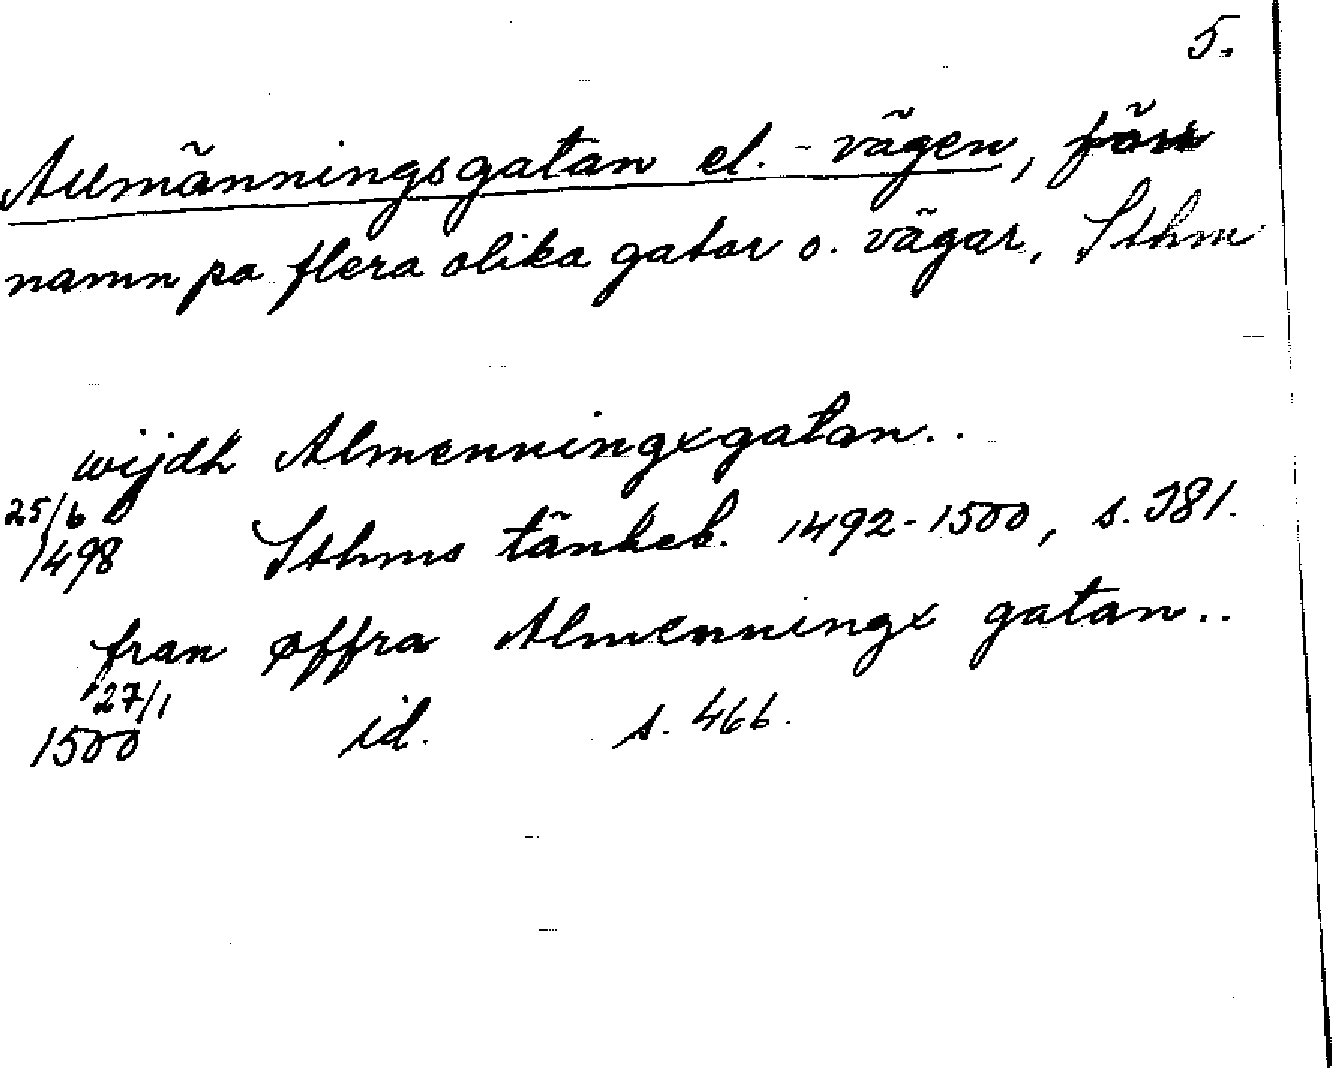 5.
Allmänningsgatan el. -vägen, förr
namn pa flera olika gator o. vägar, Sthm
wijdh Almenningxgatan..
25/6
1498 Sthms tänkeb. 1492-1500, s. 381.
fran øffra Almenningx gatan..
27/1
1500 id. s. 466.